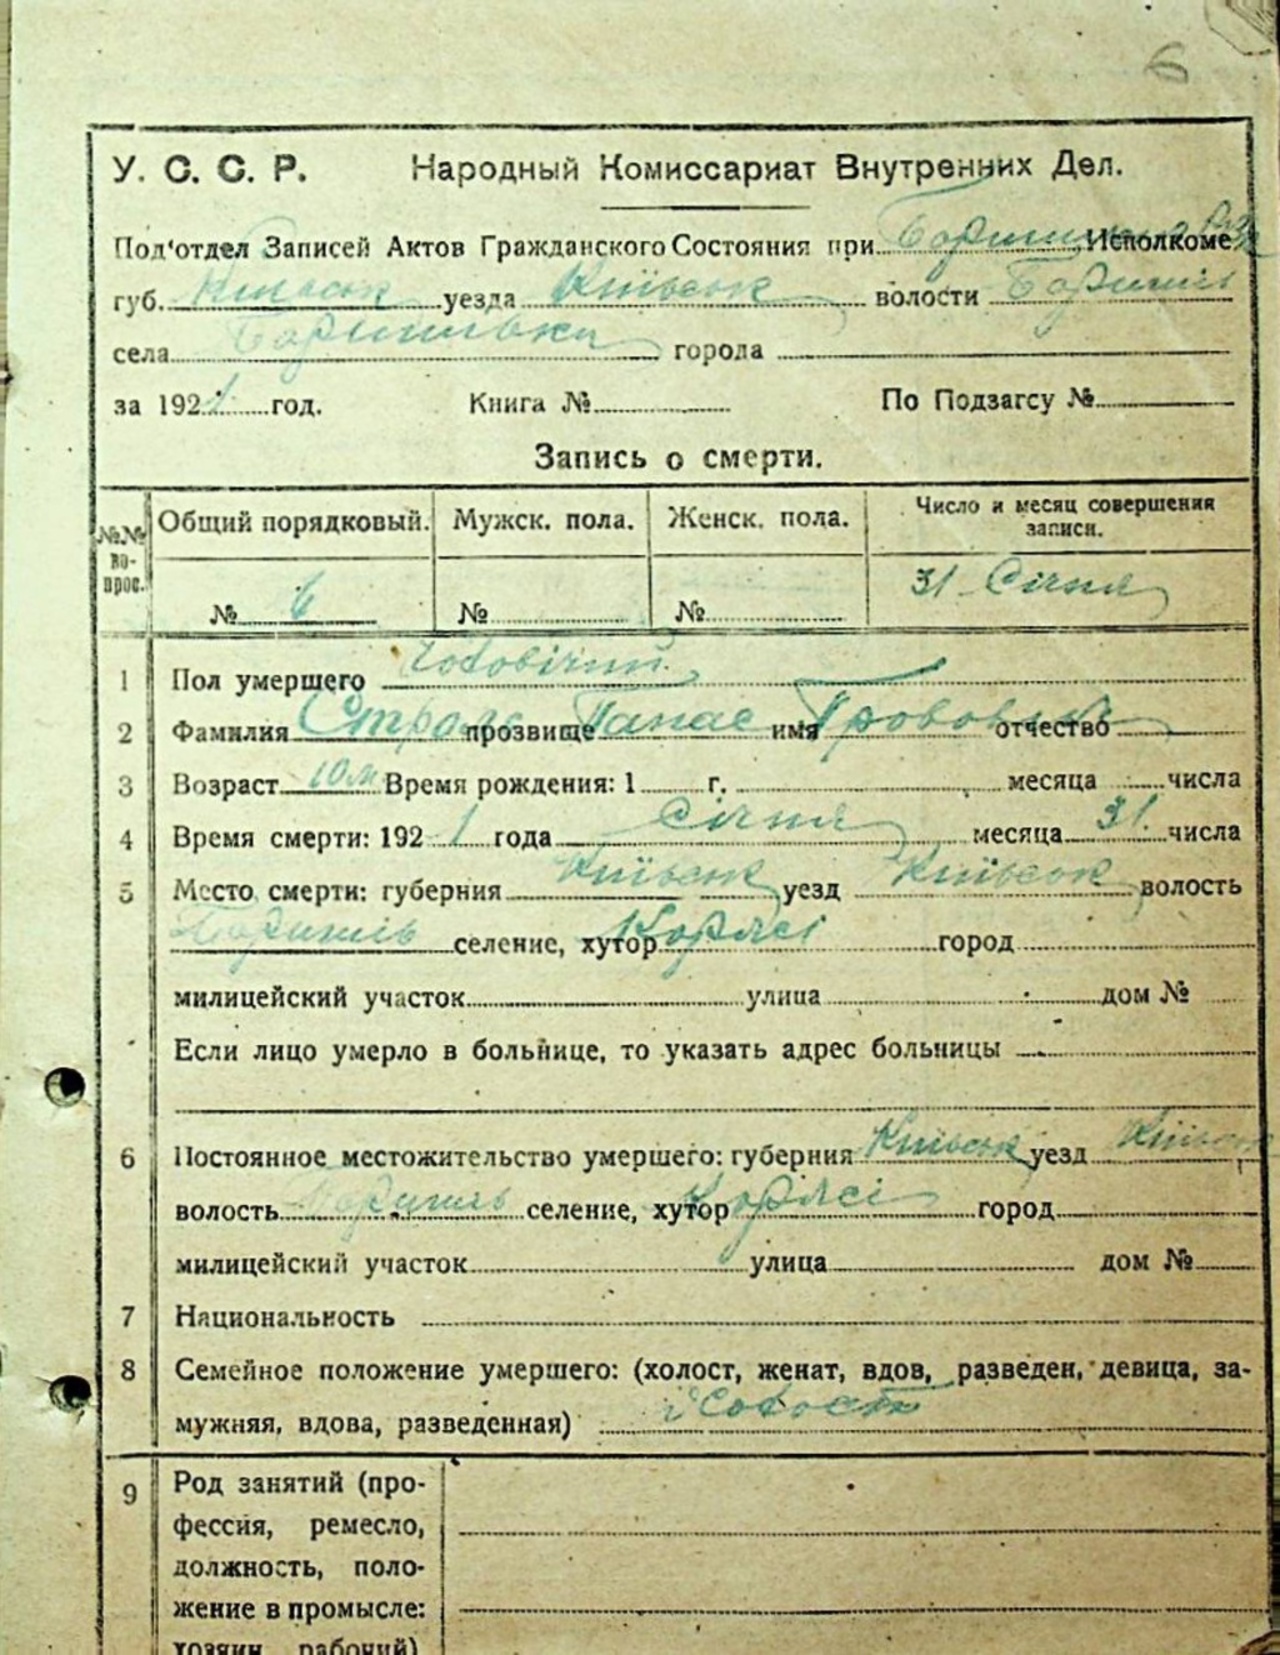 6
У. С. С. Р. Народный Комиссариат Внутренних Дел.
Под'отдел Записей Актов Гражданского Состояния при Исполкоме
губ. уезда Київськ волости Боришпіль
села города
за 1921 год. Книга № По Подзагсу №
Запись о смерти.
№№ вопрос. Общий порядковый. Мужск. пола. Женск. пола. Число и месяц совершения записи.
№ 6 № № 31 Січня
1 Пол умершего чоловічий
2 Фамилия прозвище Панас имя отчество
3 Возраст 10 м Время рождения: 1 г. месяца числа
4 Время смерти: 1921 года Січня месяца 31 числа
5 Место смерти: губерния Київськ уезд Київськ волость
селение, хутор город
милицейский участок улица дом №
Если лицо умерло в больнице, то указать адрес больницы
6 Постоянное местожительство умершего: губерния Київськ уезд Київськ
волость селение, хутор город
милицейский участок улица дом №
7 Национальность
8 Семейное положение умершего: (холост, женат, вдов, разведен, девица, за-
мужняя, вдова, разведенная) холост
9 Род занятий (про-
фессия, ремесло,
должность, поло-
жение в промысле:
хозяин, рабочий)